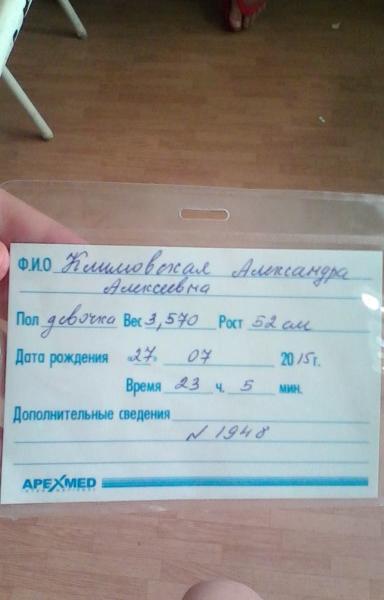 Ф.И.О Климовская Александра
Алексеевна
Пол девочка Вес 3,570 Рост 52 см
Дата рождения «27» 07 2015 г.
Время 23 ч. 5 мин.
Дополнительные сведения
N 1948
APEXMED